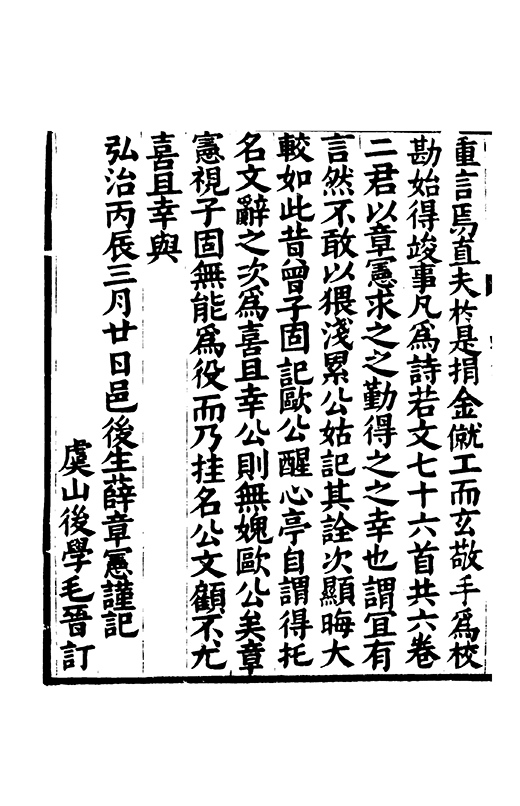 重言焉直夫於是捐金僦工而玄敬手為校
勘始得竣事凡為詩若文七十六首共六卷
二君以章憲求之之勤得之之幸也謂宜有
言然不敢以猥淺累公姑記其詮次顯晦大
較如此昔曾子固記歐公醒心亭自謂得托
名文辭之次為喜且幸公則無媿歐公矣章
憲視子固無能為役而乃挂名公文顧不尤
喜且幸與
弘治丙辰三月廿日邑後生薛章憲謹記
虞山後學毛晉訂